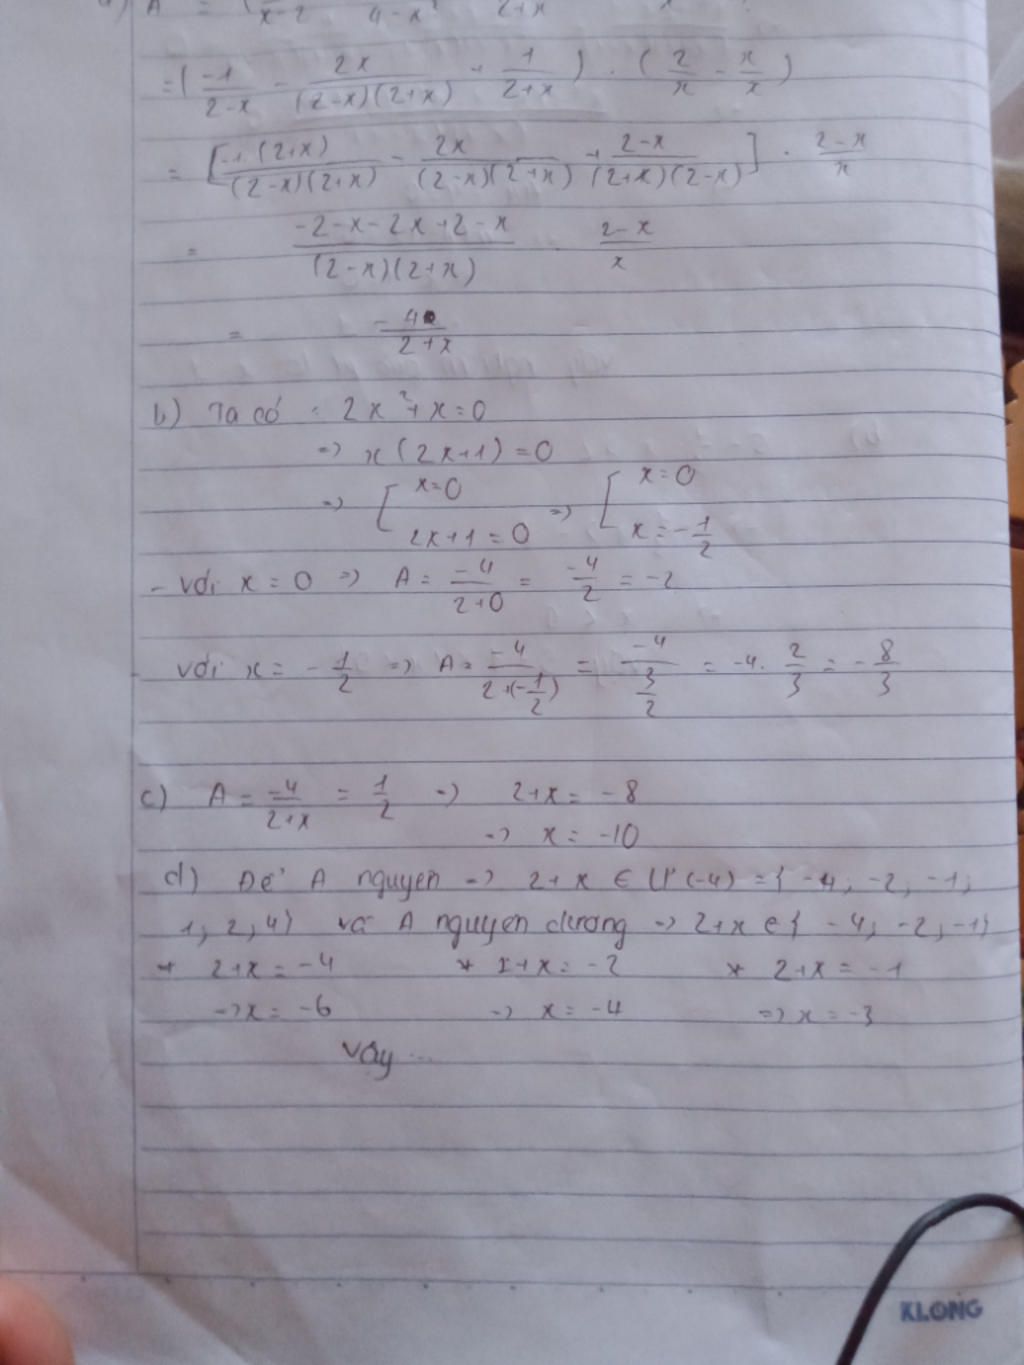 A = x-2 4-x² 2+x
=( -1/(2-x) - 2x/((2-x)(2+x)) + 1/(2+x) ) . ( 2/x - x/x )
= [ -1.(2+x)/((2-x)(2+x)) - 2x/((2-x)(2+x)) + (2-x)/((2+x)(2-x)) ] . (2-x)/x
= (-2-x-2x+2-x)/((2-x)(2+x)) . (2-x)/x
= -4/(2+x)
b) Ta có : 2x²+x=0
=> x(2x+1)=0
=> [ x=0 2x+1=0 => [ x=0 x=-1/2
- Với x=0 => A = -4/(2+0) = -4/2 = -2
Với x = -1/2 => A = -4/(2+(-1/2)) = -4/(3/2) = -4. 2/3 = -8/3
c) A = -4/(2+x) = 1/2 => 2+x = -8
=> x = -10
d) Để A nguyen => 2+x ∈ Ư(-4) = { -4; -2; -1;
1; 2; 4} và A nguyen dương => 2+x ∈ { -4; -2; -1}
* 2+x = -4 * 2+x = -2 * 2+x = -1
=> x = -6 => x = -4 => x = -3
Vậy ...
KLONG